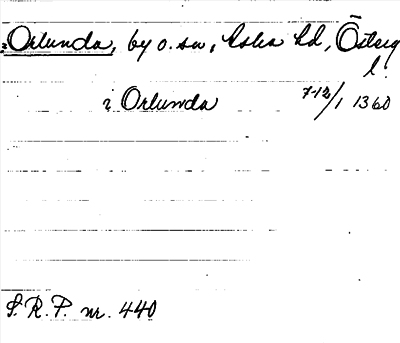 :Orlunda, by o. sn, Aska hd, Österg
l.
i Orlunda 7-12/1 1360
S. R. P. nr. 440